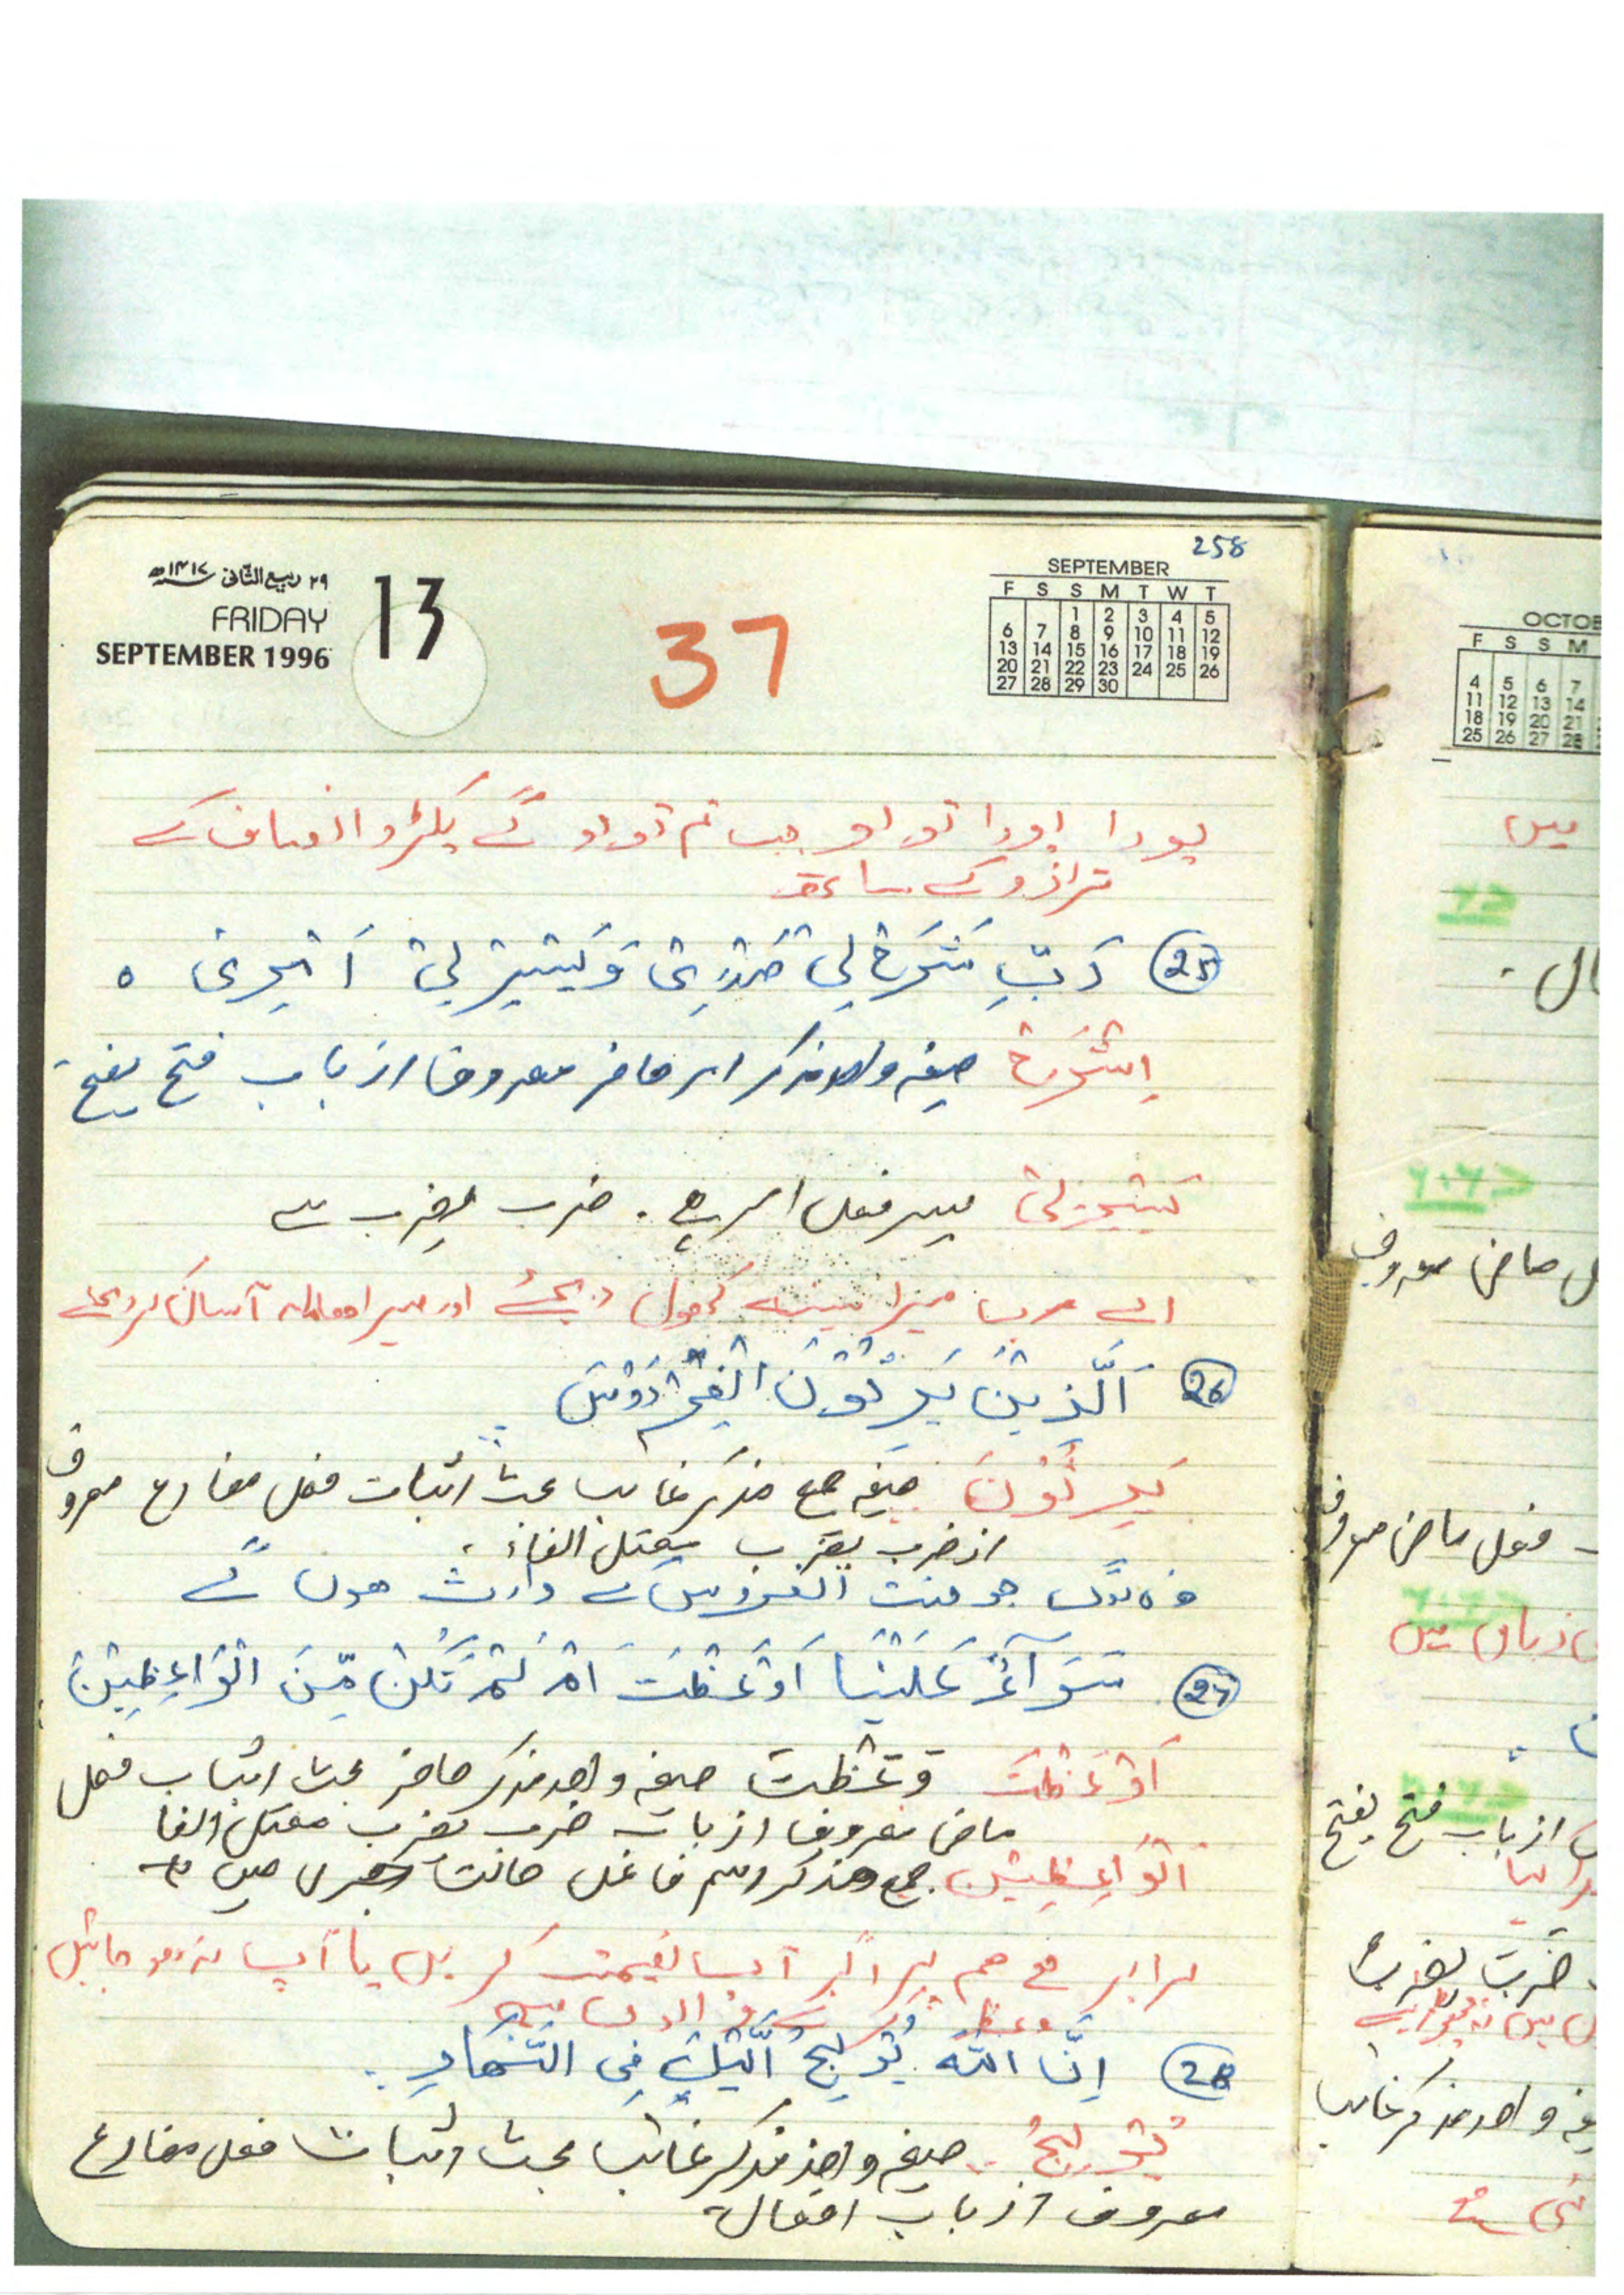 258
۲۹ ربیع الثانی ۱۴۱۷ھ
FRIDAY
SEPTEMBER 1996
13
37
SEPTEMBER
F S S M T W T
1 2 3 4 5
6 7 8 9 10 11 12
13 14 15 16 17 18 19
20 21 22 23 24 25 26
27 28 29 30
پورا پورا تولو جب تم تولو گے پکڑو انصاف کے
ترازو کے ساتھ
25 رَبِّ شْرَحْ لِیْ صَدْرِیْ وَیَسِّرْ لِیْ اَمْرِیْ ٥
اِشْرَحْ صیغہ واحد مذکر امر حاضر معروف از باب فتح یفتح
یَسِّرْ لِیْ یسر فعل امر ہے۔ ضرب یضرب سے
اے رب میرا سینہ کھول دیجئے اور میرا معاملہ آسان کر دیجئے
26 اَلَّذِیْنَ یَرِثُوْنَ الْفِرْدَوْسَ
یَرِثُوْنَ صیغہ جمع مذکر غائب بحث اثبات فعل مضارع معروف
از ضرب یضرب معتل الفاء۔
وہ لوگ جو جنت الفردوس کے وارث ہوں گے
27 سَوَآءٌ عَلَیْنَا اَوَعَظْتَ اَمْ لَمْ تَکُنْ مِّنَ الْوَاعِظِیْنَ
اَوَعَظْتَ وَعَظْتَ صیغہ واحد مذکر حاضر بحث اثبات فعل
ماضی معروف از باب ضرب یضرب معتل الفا
الْوَاعِظِیْنَ جمع مذکر اسم فاعل حالت جری میں ہے
برابر ہے ہم پر اگر آپ نصیحت کریں یا آپ نہ ہو جائیں
وعظ کرنے والوں میں سے
28 اِنَّ اللّٰهَ یُوْلِجُ الَّیْلَ فِی النَّهَارِ۔
یُوْلِجُ صیغہ واحد مذکر غائب بحث اثبات فعل مضارع
معروف از باب افعال
OCTOB
F S S M
4 5 6 7
11 12 13 14
18 19 20 21
25 26 27 28
میں
ماضی معروف
فعل ماضی معروف
زبان میں
از باب فتح یفتح
ضرب یضرب
واحد مذکر غائب